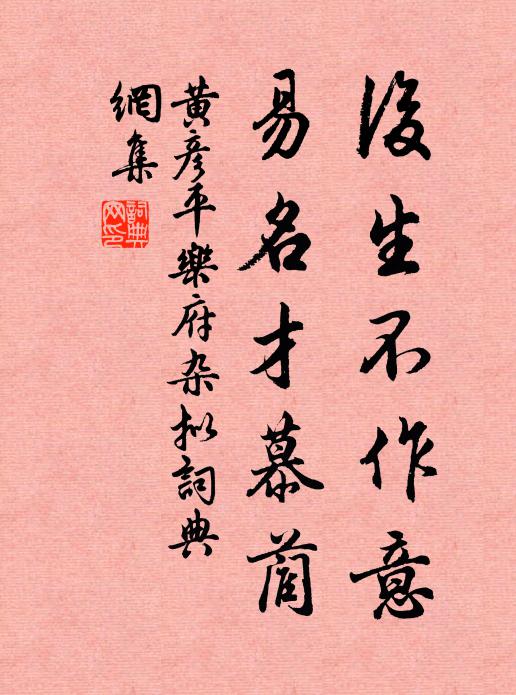 後生不作意
易名才慕藺
黃彦平樂府杂拟詞典
網集
詞典
网印